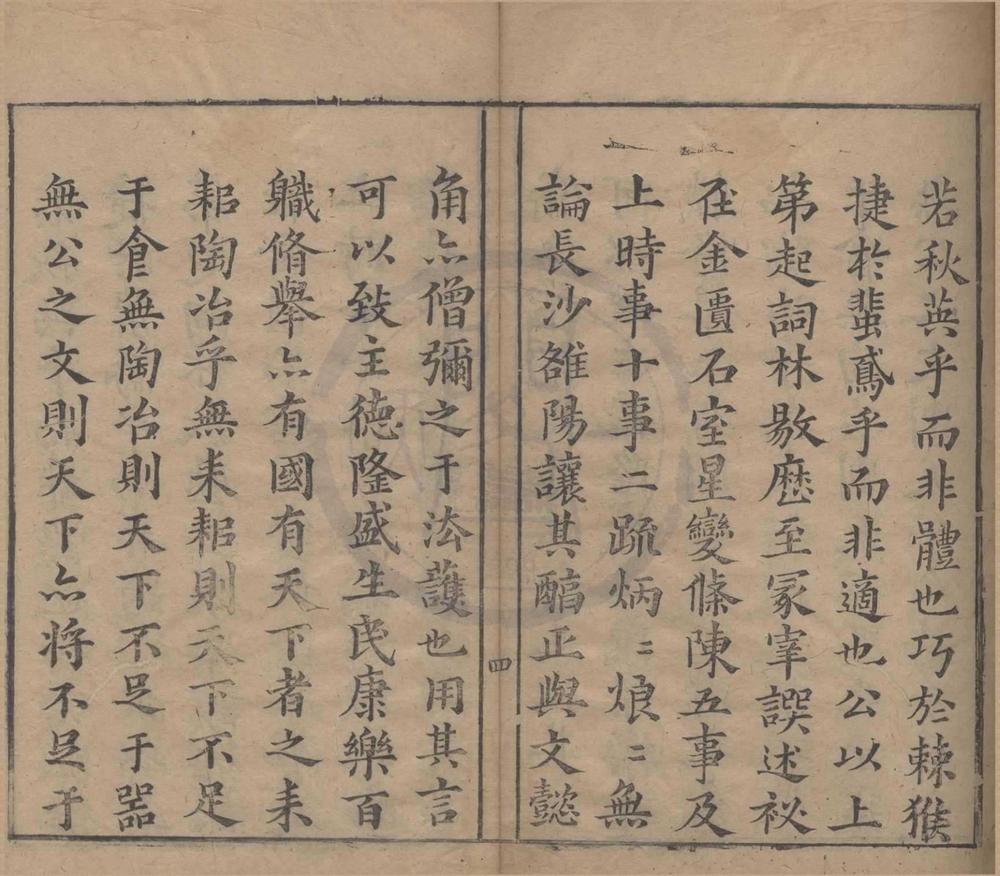 若秋英乎而非體也巧於棘猴
捷於蜚鳶乎而非適也公以上
第起詞林敭歷至冢宰譔述祕
在金匱石室星變條陳五事及
上時事十事二疏炳〻烺〻無
論長沙雒陽讓其醇正與文懿
四
角亦僧彌之于法護也用其言
可以致主德隆盛生民康樂百
職脩舉亦有國有天下者之耒
耜陶冶乎無耒耜則天下不足
于食無陶冶則天下不足于器
無公之文則天下亦將不足于